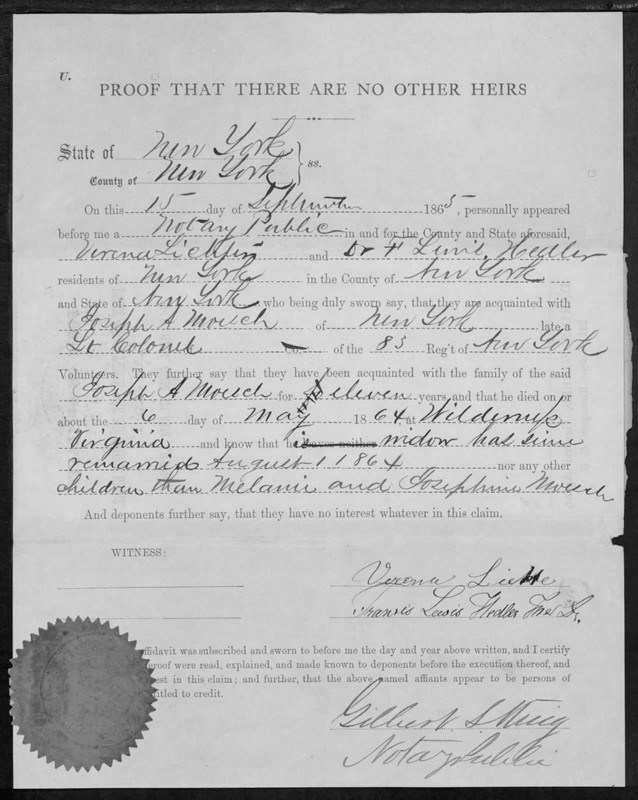 U.
PROOF THAT THERE ARE NO OTHER HEIRS
State of New York
County of New York } ss.
On this 15 day of September 1865, personally appeared
before me a Notary Public in and for the County and State aforesaid,
Verena and Dr F Hedler
residents of New York in the County of New York
and State of New York who being duly sworn say, that they are acquainted with
Joseph A Moesch of New York late a
Lt Colonel Co. of the 83 Reg't of New York
Volunteers. They further say that they have been acquainted with the family of the said
Joseph A Moesch for eleven years and that he died on or
about the 6 day of May 1864 at Wilderness
Virginia and know that h is leaves neither widow has since
remarried August 1 1864 nor any other
children than Melanie and Josephine Moesch
And deponents further say, that they have no interest whatever in this claim.
WITNESS:
Verena
Francis Lewis Hedler
ffidavit was subscribed and sworn to before me the day and year above written, and I certify
ereof were read, explained, and made known to deponents before the execution thereof, and
est in this claim; and further, that the above named affiants appear to be persons of
titled to credit.
Gilbert S King
Notary Public